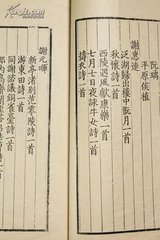 阮瑀
平原侯植
謝惠連
泛湖歸出樓中翫月一首
秋懷詩一首
西陵遇風獻康樂一首
七月七日夜詠牛女詩一首
擣衣詩一首
謝元暉
新亭渚別范零陵詩一首
游東田詩一首
同謝諮議銅雀臺詩一首